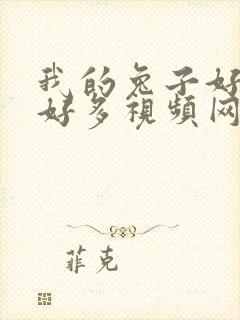 我的兔子好
好多視頻网
菲克